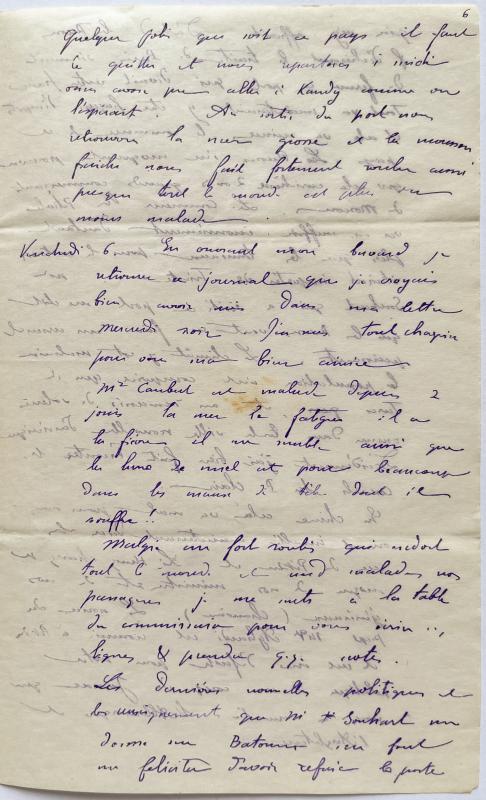 6
Quelque joli que soit ce pays il faut
le quitter et nous repartons à midi
sans avoir pu aller à Kandy comme on
l'espérait. Au sortir du port nous
retrouvons la mer grosse et la mousson
fraîche nous fait fortement rouler aussi
presque tout le monde est plus ou
moins malade.
Vendredi 6 En ouvrant mon buvard je
retrouve ce journal que je croyais
bien avoir mis dans ma lettre
mercredi soir j'en suis tout chagrin
pour vous ma bien aimée.
Mr est malade depuis 2
jours la mer le fatigue il a
la fièvre il me semble aussi que
la lune de miel est pour beaucoup
dans les maux de tête dont il
souffre !!
Malgré un fort roulis qui endort
tout le monde et rend malades nos
passagers je me mets à la table
du commissaire pour vous écrire
lignes & prendre q.q. notes.
Les dernières nouvelles politiques et
les renseignements que Mr Souhart me
donne sur Batoum me font
me féliciter d'avoir refusé le poste